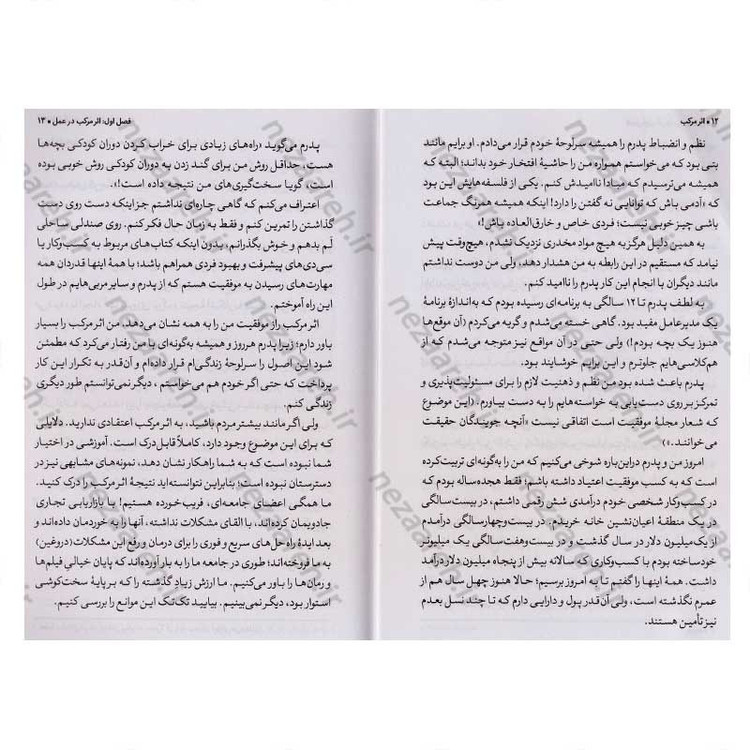 ۱۲ • اثر مرکب
نظم و انضباط پدرم را همیشه سرلوحهٔ خودم قرار می‌دادم. او برایم مانند
بتی بود که می‌خواستم همواره من را حاشیهٔ افتخار خود بداند؛ البته که
همیشه می‌ترسیدم که مبادا ناامیدش کنم. یکی از فلسفه‌هایش این بود
که «آدمی باش که توانایی نه گفتن را دارد! اینکه همیشه همرنگ جماعت
باشی چیز خوبی نیست؛ فردی خاص و خارق‌العاده باش!»
به همین دلیل هرگز به هیچ مواد مخدری نزدیک نشدم، هیچ‌وقت پیش
نیامد که مستقیم در این رابطه به من هشدار دهد، ولی من دوست نداشتم
مانند دیگران با انجام این کار پدرم را ناامید کنم.
به لطف پدرم تا ۱۲ سالگی به برنامه‌ای رسیده بودم که به‌اندازهٔ برنامهٔ
یک مدیرعامل مفید بود. گاهی خسته می‌شدم و گریه می‌کردم (آن موقع‌ها
هنوز یک بچه بودم!) ولی حتی در آن مواقع نیز متوجه می‌شدم که از
هم‌کلاسی‌هایم جلوترم و این برایم خوشایند بود.
پدرم باعث شده بود من نظم و ذهنیت لازم را برای مسئولیت‌پذیری و
تمرکز بر روی دست‌یابی به خواسته‌هایم را به دست بیاورم. (این موضوع
که شعار مجلهٔ موفقیت است اتفاقی نیست: «آنچه جویندگان حقیقت
می‌خوانند.»)
امروز من و پدرم دراین‌باره شوخی می‌کنیم که من را به‌گونه‌ای تربیت کرده
که به کسب موفقیت اعتیاد داشته باشم؛ فقط هجده‌ساله بودم که
در کسب‌وکار شخصی خودم درآمدی شش رقمی داشتم، در بیست‌سالگی
در یک منطقهٔ اعیان‌نشین خانه خریدم. در بیست‌وچهارسالگی درآمدم
از یک‌میلیون دلار در سال گذشت و در بیست‌وهفت‌سالگی یک میلیونر
خودساخته بودم با کسب‌وکاری که سالانه بیش از پنجاه میلیون دلار درآمد
داشت. همهٔ اینها را گفتیم تا به امروز برسیم؛ حالا هنوز چهل سال هم از
عمرم نگذشته است، ولی آن‌قدر پول و دارایی دارم که تا چند نسل بعدم
نیز تأمین هستند.
فصل اول: اثر مرکب در عمل • ۱۳
پدرم می‌گوید «راه‌های زیادی برای خراب کردن دوران کودکی بچه‌ها
هست، حداقل روش من برای گند زدن به دوران کودکی روش خوبی بوده
است، گویا سخت‌گیری‌های من نتیجه داده است!».
اعتراف می‌کنم که گاهی چاره‌ای نداشتم جز اینکه دست روی دست
گذاشتن را تمرین کنم و فقط به زمان حال فکر کنم. روی صندلی ساحلی
لَم بدهم و خوش بگذرانم، بدون اینکه کتاب‌های مربوط به کسب‌وکار یا
سی‌دی‌های پیشرفت و بهبود فردی همراهم باشد؛ با همهٔ اینها قدردان همه
مهارت‌های رسیدن به موفقیت هستم که از پدرم و سایر مربی‌هایم در طول
این راه آموختم.
اثر مرکب راز موفقیت من را به همه نشان می‌دهد. من اثر مرکب را بسیار
باور دارم؛ زیرا پدرم هرروز و همیشه به‌گونه‌ای با من رفتار می‌کرد که مطمئن
شود این اصول را سرلوحهٔ زندگی‌ام قرار داده‌ام و آن‌قدر به تکرار این کار
پرداخت که حتی اگر خودم هم می‌خواستم ، دیگر نمی‌توانستم طور دیگری
زندگی کنم.
ولی اگر مانند بیشتر مردم باشید، به اثر مرکب اعتقادی ندارید. دلایلی
که برای این موضوع وجود دارد، کاملاً قابل‌درک است. آموزشی در اختیار
شما نبوده است که به شما راهکار نشان دهد، نمونه‌های مشابهی نیز در
دسترستان نبوده است؛ بنابراین نتوانسته‌اید نتیجهٔ اثر مرکب را درک کنید.
ما همگی اعضای جامعه‌ای، فریب‌خورده هستیم! با بازاریابی تجاری
جادویمان کرده‌اند، با القای مشکلات نداشته، آنها را به خوردمان داده‌اند و
بعد ایدهٔ راه‌حل‌های سریع و فوری را برای درمان و رفع این مشکلات (دروغین)
به ما فروخته‌اند؛ طوری در جامعه ما را به بار آورده‌اند که پایان خیالی فیلم‌ها
و رمان‌ها را باور می‌کنیم. ما ارزش زیادِ گذشته را که بر پایهٔ سخت‌کوشی
استوار بود، دیگر نمی‌بینیم. بیایید تک‌تک این موانع را بررسی کنیم.
nezaareh.ir